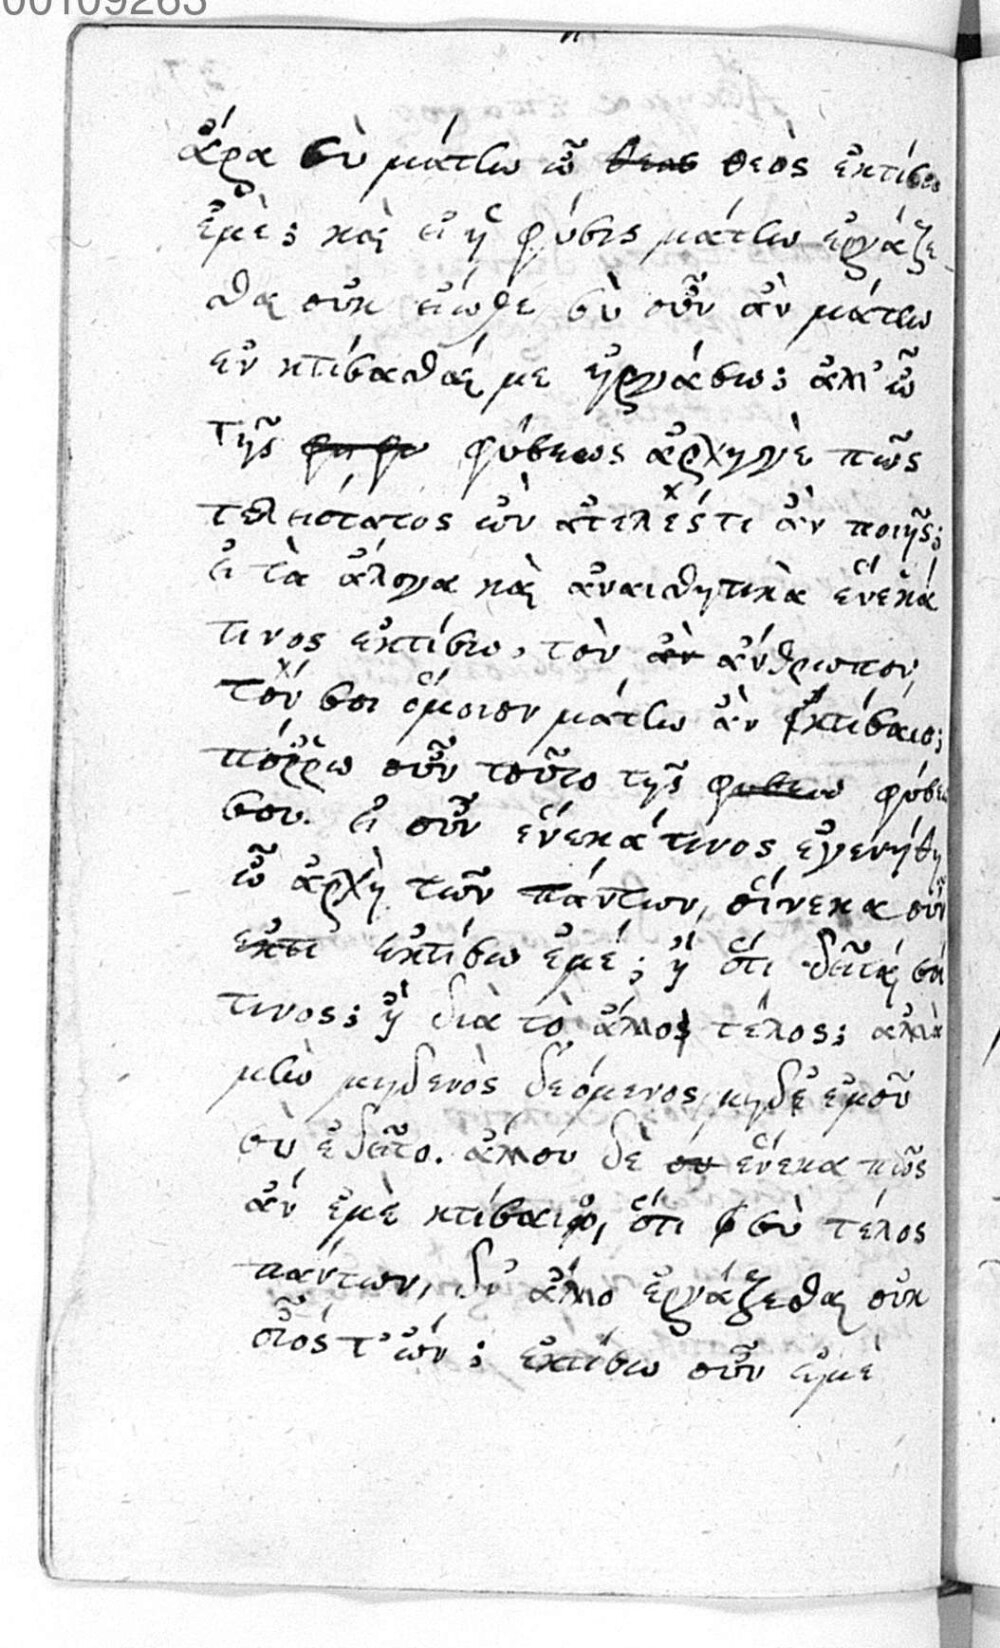 00109263
ἆρα σὺ μάτην ὦ θεος θεὸς ἐκτίσω
ἐμὲ; καὶ εἰ ἡ φύσις μάτην ἐργάζε
σθαι οὐκ εἴωθε σὺ οὖν ἂν μάτην
ἐν κτίσασθαί με ἠργάσω; ἀλλ' ὦ
τῆς φύσεως ἀρχηγὲ πῶς
τελειότατος ὢν ἀτελές τι ἂν ποιῇς;
εἰ τὰ ἄλογα καὶ ἀναισθητικὰ ἕνεκά
τινος ἐκτίσω, τὸν ἂν ἄνθρωπον,
τόν σοι ὅμοιον μάτην ἂν κτίσαιο;
πόῤῥω οὖν τοῦτο τῆς φυσεω φύσεώ
σου. εἰ οὖν ἕνεκά τινος ἐγενήθη
ὦ ἀρχὴ τῶν πάντων, οὕνεκα οὖν
ἐκτι ἐκτίσω ἐμέ; ἢ ὅτι δεῖταί σοί
τινος; ἢ διὰ τὸ ἄλλος τέλος; ἀλλὰ
μὴν μηδενὸς δεόμενος, μηδὲ ἐμοῦ
σὺ ἐδεῖτο. ἄλλου δὲ ου ἕνεκα πῶς
ἂν ἐμὲ κτίσαιο, ὅτι σὺ τέλος
πάντων, δι' ἄλλο ἐργάζεσθαι οὐκ
οἷός τ' ὤν; ἐκτίσω οὖν ἐμὲ